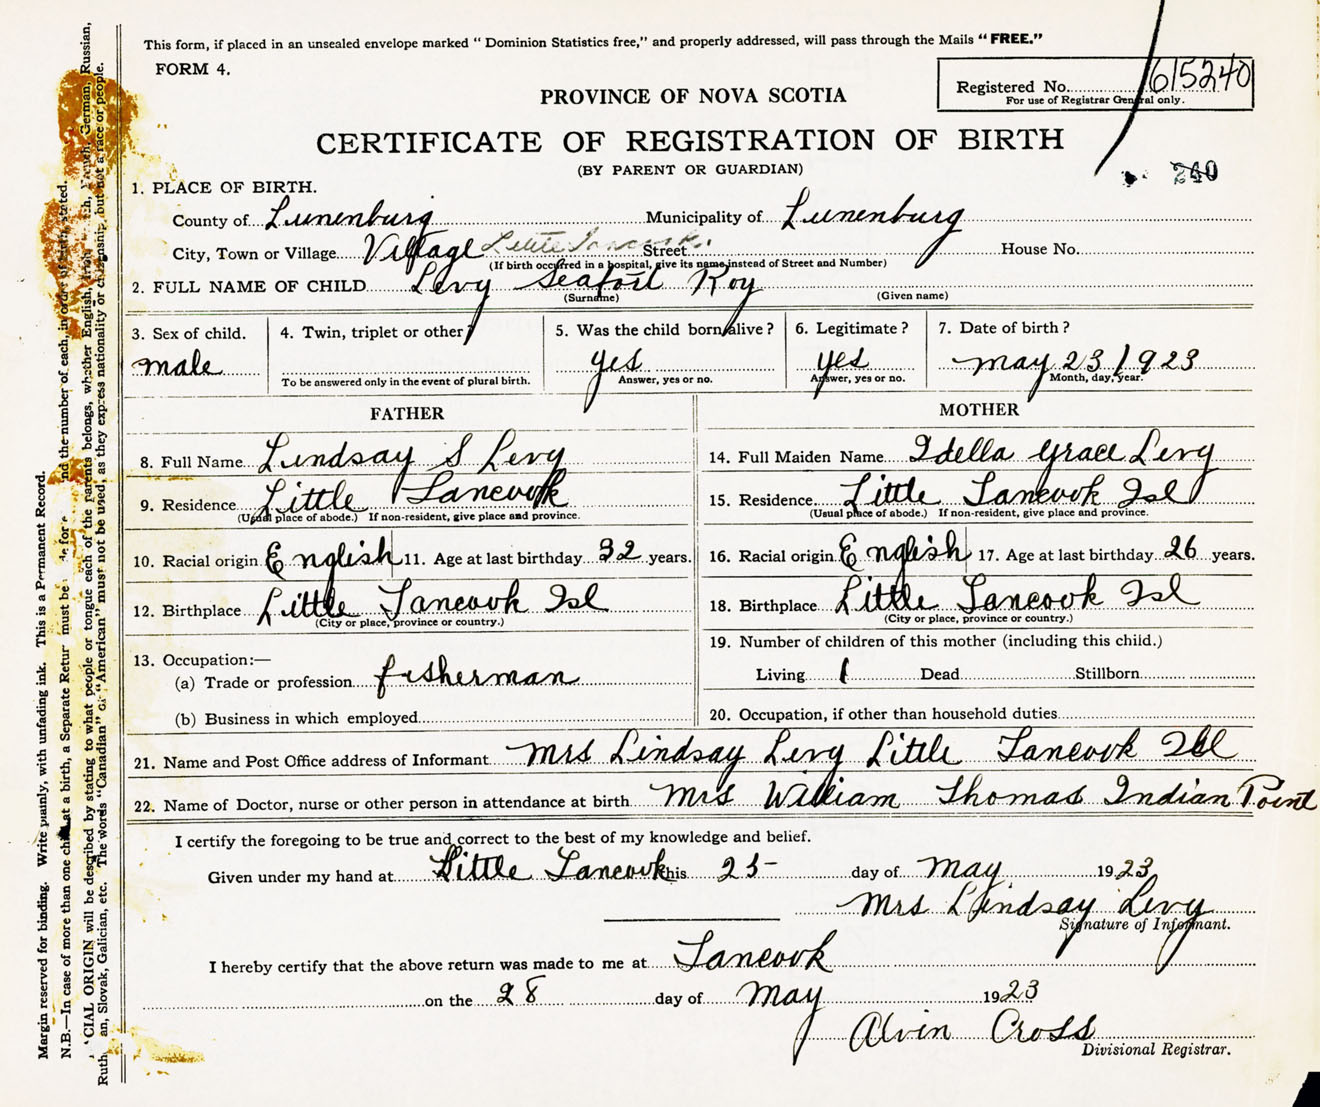 This form, if placed in an unsealed envelope marked " Dominion Statistics free," and properly addressed, will pass through the Mails " FREE."
FORM 4.
Registered No. 615240
For use of Registrar General only.
PROVINCE OF NOVA SCOTIA
CERTIFICATE OF REGISTRATION OF BIRTH
(BY PARENT OR GUARDIAN)
240
1. PLACE OF BIRTH.
County of Lunenburg Municipality of Lunenburg
City, Town or Village Village Little Tancook. Street House No.
(If birth occurred in a hospital, give its name instead of Street and Number)
2. FULL NAME OF CHILD Levy Seafort Roy
(Surname) (Given name)
3. Sex of child. male
4. Twin, triplet or other?
To be answered only in the event of plural birth.
5. Was the child born alive? yes
Answer, yes or no.
6. Legitimate? yes
Answer, yes or no.
7. Date of birth? May 23/1923
Month, day, year.
FATHER
8. Full Name Lindsay S Levy
9. Residence Little Tancook
(Usual place of abode.) If non-resident, give place and province.
10. Racial origin English 11. Age at last birthday 32 years.
12. Birthplace Little Tancook Isl
(City or place, province or country.)
13. Occupation:—
(a) Trade or profession fisherman
(b) Business in which employed
MOTHER
14. Full Maiden Name Idella Grace Levy
15. Residence Little Tancook Isl
(Usual place of abode.) If non-resident, give place and province.
16. Racial origin English 17. Age at last birthday 26 years.
18. Birthplace Little Tancook Isl
(City or place, province or country.)
19. Number of children of this mother (including this child.)
Living 1 Dead Stillborn
20. Occupation, if other than household duties
21. Name and Post Office address of Informant Mrs Lindsay Levy Little Tancook Isl
22. Name of Doctor, nurse or other person in attendance at birth Mrs William Thomas Indian Point
I certify the foregoing to be true and correct to the best of my knowledge and belief.
Given under my hand at Little Tancook this 25- day of May 1923
Mrs Lindsay Levy
Signature of Informant.
I hereby certify that the above return was made to me at Tancook
on the 28 day of May 1923
Alvin Cross
Divisional Registrar.
Margin reserved for binding. Write plainly, with unfading ink. This is a Permanent Record.
N.B.—In case of more than one child at a birth, a Separate Return must be for and the number of each, in order of birth, stated.
CIAL ORIGIN will be described by stating to what people or tongue each of the parents belongs, whether English, French, German, Russian,
Ruth an, Slovak, Galician, etc. The words "Canadian" or "American" must not be used, as they express nationality or citizenship, but not a race or people.